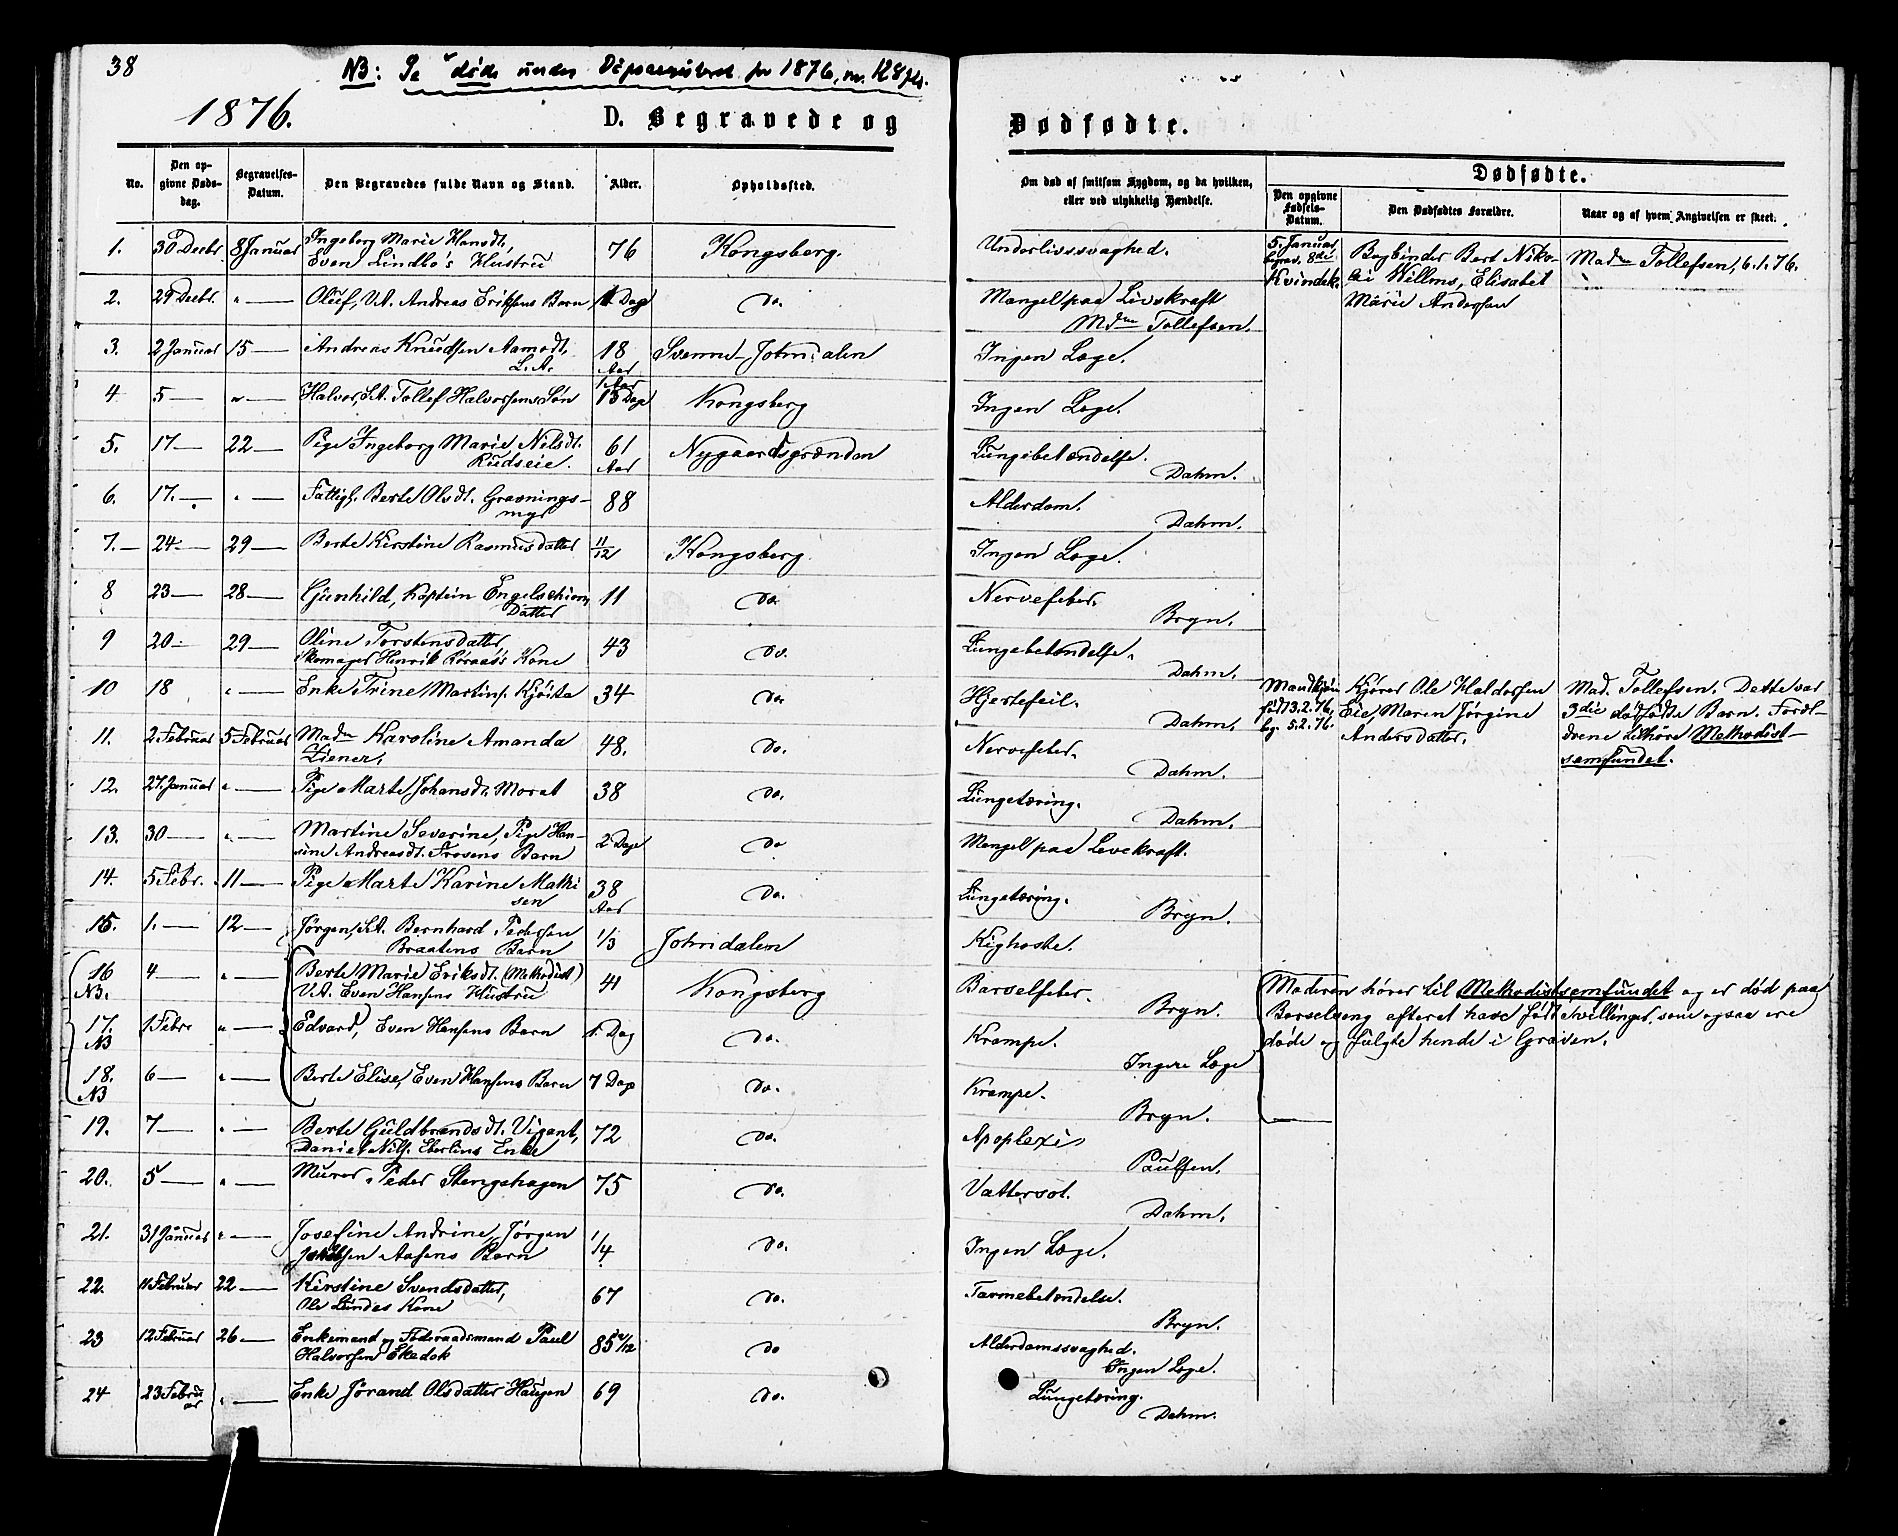 38
NB: Se døde under Daabsregisteret for 1876, no. 128 flg.
1876.
D. Begravede og
Dødfødte.
No.
Den opgivne Dødsdag.
Begravelses-Datum.
Den Begravedes fulde Navn og Stand.
Alder.
Opholdssted.
Om død af smitsom Sygdom, og da hvilken, eller ved ulykkelig Hændelse.
Dødfødte.
Den opgivne Fødsels-Datum.
Den Dødfødtes Forældre.
Naar og af hvem Angivelsen er skeet.
1. 30 Decbr 8 Januar Ingeborg Marie Hansdt, 76 Kongsberg. Underlivssvaghed.
Even Lindbo's Hustru
5. Januar, begrav. 8de Kvindek.
Bogbinder Bert Nikolai Willms, Elisabet Marie Andersen
Madm Tollefsen, 6.1.76.
2. 29 Decbr. " — Oluf, U.A. Andreas Eriksens Barn, Dage do. Mangel paa Livskraft
Mdm Tollefsen.
3. 2 Januar 15 — Andreas Knudsen Aamodt, 18 Aar Svenne-Johnsdalen Ingen Læge.
L.A.
4 5 — " — Halvor, S.A. Tollef Halvorsens Søn 1 Aar 15 Dage Kongsberg Ingen Læge.
5. 17 — 22 — Pige Ingeborg Marie Nilsdt. 61 Aar Nygaardsgrænden Lungebetændelse.
Rudseie. Dahm.
6. 17. — " — Fattigl. Berte Olsdt. Gravningsmyr 88 Alderdom.
Dahm.
7. — 24 — 29 — Berte Kirstine Rasmusdatter 11/12 Kongsberg. Ingen Læge.
8 23 — 28 — Gunhild, Kaptein Engelschiøns Datter 11 do. Nervefeber.
Bryn.
9 20 — 29 — Oline Torstensdatter, 43 do. Lungebetændelse.
Skomager Henrik Røraas's Kone Dahm.
10 18 " — Enke Trine Martins. Kjøita 34 do. Hjertefeil.
Dahm.
Mandkjøn født 3.2.76, bg. 5.2.76.
Kjører Ole Haldorsen Eie, Maren Jørgine Andersdatter.
Mad. Tollefsen. Dette var 3die dødfødte Barn. Forældrene tilhøre Methodistsamfundet.
11. 2. Februar 5 Februar Madm Karoline Amanda 48. do. Nervefeber.
Liener, Dahm.
12. 27. Januar " — Pige Marte Johansdt. Morat 38 do. Lungetæring.
Dahm.
13. 30 — " — Martine Severine, Pige Hansine Andreasdt. Frosens Barn 2 Dage do Mangel paa Levekraft.
14. 5 Febr. 11 — Pige Marte Karine Mathisen 38 Aar do. Lungetæring.
Bryn.
15. 1. — 12 — Jørgen, S.A. Bernhard Pedersen 1/3 Johnsdalen Kighoste.
Braatens Barn
16 NB. 4 — " — Berte Marie Eriksdt. (Methodist) 41 Kongsberg Barselfeber.
U.A. Even Hansens Hustru Bryn.
Moderen hører til Methodistsamfundet og er død paa
Barselseng efterat have født Tvillinger, som ogsaa ere
døde og fulgte hende i Graven.
17. NB 1 Febr " — Edvard, Even Hansens Barn 1. Dag do. Krampe.
Ingen Læge
18. NB 6 — " — Berte Elise, Even Hansens Barn 7 Dage do. Krampe.
Bryn.
19. 7 — " — Berte Guldbrandsdt. Vigant, 72 do. Apoplexi
Daniel Nils. Eberlins Enke Paulsen.
20. 5 — " — Murer Peder Stengehagen 75 do. Vattersot.
Dahm.
21. 31 Januar " — Josefine Andrine, Jørgen 1/4 do. Ingen Læge.
Jakobsen Aasens Barn
22. 11 Februar 22 — Kirstine Svendsdatter, 67 do. Tarmebetændelse.
Ole Lindes Kone Bryn.
23 12 Februar 26 — Enkemand og Føderaadsmand Paul 85 /12 do Alderdomssvaghed.
Halvorsen Ekedok Ingen Læge.
24 23 Februar " — Enke Jørand Olsdatter Haugen 69 do. Lungetæring.
Dahm.